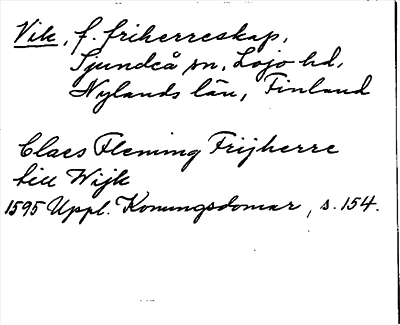 Vik, f. friherreskap,
Sjundeå sn, Lojo hd,
Nylands län, Finland
Claes Fleming Frijherre
till Wijk
1595 Uppl. Konungsdomar, s. 154.